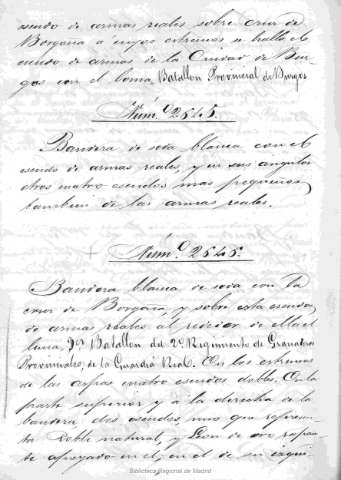 escudo de armas reales sobre cruz de
Borgoña a cuyos extremos se halla el
escudo de armas de la Ciudad de Bur-
gos con el lema, Batallon Provincial de Burgos
Núm.º 2545.
Bandera de seda blanca con el
escudo de armas reales, y en sus angulos
otros cuatro escudos mas pequeños,
tambien de las armas reales.
Núm.º 2546.
Bandera blanca de seda con la
cruz de Borgoña, y sobre esta escudo
de armas reales al rededor de ella el
lema, 2º Batallon del 2º Regimiento de Granaderos
Provinciales, de la Guardia Real. En los extremos
de las aspas cuatro escudos dobles. En la
parte superior y á la derecha de la
bandera, dos escudos, uno que represen-
ta Roble natural, y Leon de oro rapan-
te apoyado en el, en el de su izqui-
Biblioteca Regional de Madrid